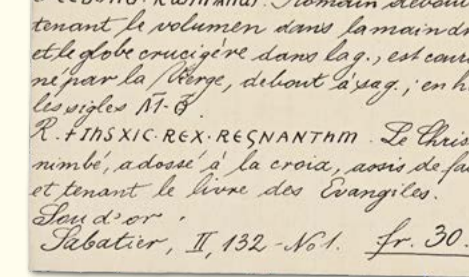 tenant le volumen dans la main d
et le globe crucigère dans la g., est cour
né par la Vierge, debout à sa g.; en h
les sigles M̄-Θ̄.
R. +IhSXIC·REX·REGNANThm. Le Chris
nimbé, adossé à la croix, assis de fa
et tenant le livre des Évangiles.
Sou d'or.
Sabatier, II, 132 - No 1. fr. 30.